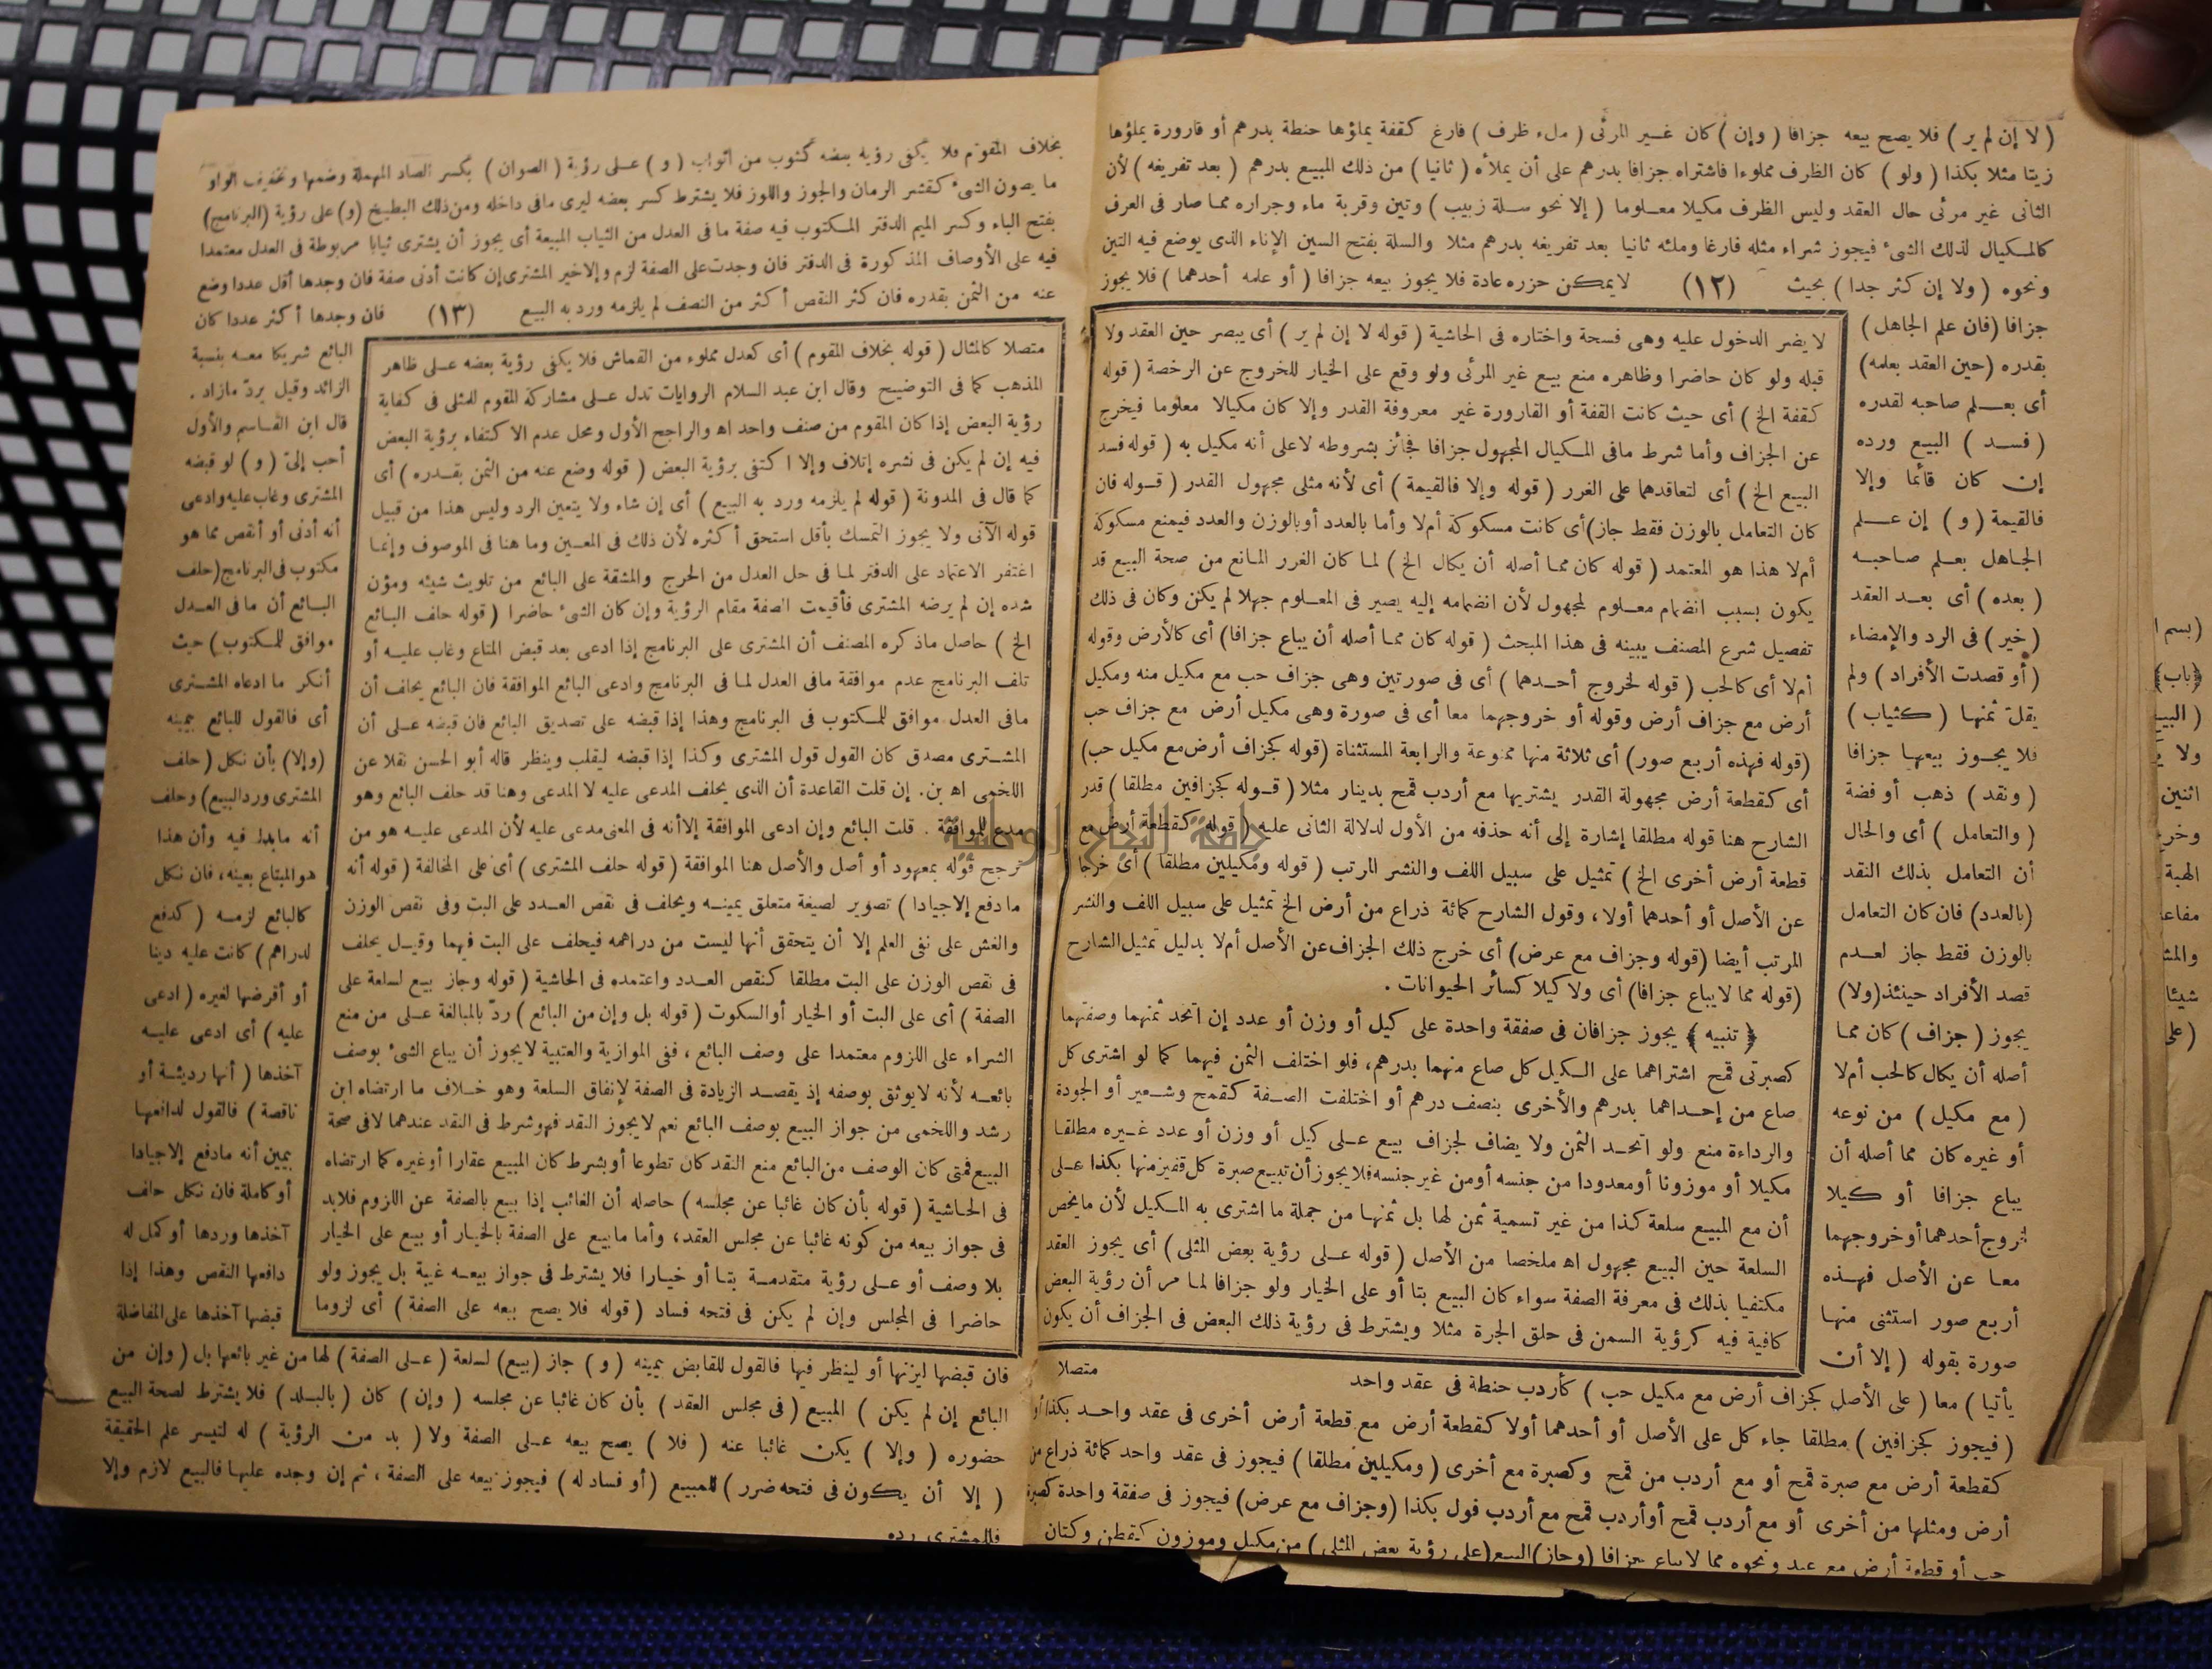 ( لا إن لم ير ) فلا يصح بيعه جزافا ( وإن ) كان غير المرئى ( ملء ظرف ) فارغ كقفة يملؤها حنطة بدرهم أو قارورة يملؤها
زيتا مثلا بكذا ( ولو ) كان الظرف مملوءا فاشتراه جزافا بدرهم على أن يملأه ( ثانيا ) من ذلك المبيع بدرهم ( بعد تفريغه ) لأن
الثانى غير مرئى حال العقد وليس الظرف مكيلا معلوما ( إلا نحو سلة زبيب ) وتين وقربة ماء وجراره مما صار فى العرف
كالمكيال لذلك الشىء فيجوز شراء مثله فارغا وملئه ثانيا بعد تفريغه بدرهم مثلا والسلة بفتح السين الإناء الذى يوضع فيه التين
ونحوه ( ولا إن كثر جدا ) بحيث (١٢) لا يمكن حزره عادة فلا يجوز بيعه جزافا ( أو علمه أحدهما ) فلا يجوز
جزافا (فان علم الجاهل)
بقدره (حين العقد بعلمه)
أى بعلم صاحبه لقدره
( فسد ) البيع ورده
إن كان قائما وإلا
فالقيمة ( و ) إن علم
الجاهل بعلم صاحبه
( بعده ) أى بعد العقد
( خير ) فى الرد والإمضاء
( أو قصدت الأفراد ) ولم
يقلّ ثمنها ( كثياب )
فلا يجوز بيعها جزافا
( ونقد ) ذهب أو فضة
( والتعامل ) أى والحال
أن التعامل بذلك النقد
(بالعدد) فان كان التعامل
بالوزن فقط جاز لعدم
قصد الأفراد حينئذ (ولا)
يجوز ( جزاف ) كان مما
أصله أن يكال كالحب أم لا
( مع مكيل ) من نوعه
أو غيره كان مما أصله أن
يباع جزافا أو كيلا
لخروج أحدهما أو خروجهما
معا عن الأصل فهذه
أربع صور استثنى منها
صورة بقوله ( إلا أن
لا يضر الدخول عليه وهى فسحة واختاره فى الحاشية ( قوله لا إن لم ير ) أى يبصر حين العقد ولا
قبله ولو كان حاضرا وظاهره منع بيع غير المرئى ولو وقع على الخيار للخروج عن الرخصة ( قوله
كقفة الخ ) أى حيث كانت القفة أو القارورة غير معروفة القدر وإلا كان مكيالا معلوما فيخرج
عن الجزاف وأما شرط مافى المكيال المجهول جزافا فجائز بشروطه لا على أنه مكيل به ( قوله فسد
البيع الخ ) أى لتعاقدهما على الغرر ( قوله وإلا فالقيمة ) أى لأنه مثلى مجهول القدر ( قوله فان
كان التعامل بالوزن فقط جاز) أى كانت مسكوكة أم لا وأما بالعدد أو بالوزن والعدد فيمنع مسكوكة
أم لا هذا هو المعتمد ( قوله كان مما أصله أن يكال الخ ) لما كان الغرر المانع من صحة البيع قد
يكون بسبب انضمام معلوم لمجهول لأن انضمامه إليه يصير فى المعلوم جهلا لم يكن وكان فى ذلك
تفصيل شرع المصنف يبينه فى هذا المبحث ( قوله كان مما أصله أن يباع جزافا) أى كالأرض وقوله
أم لا أى كالحب ( قوله لخروج أحدهما ) أى فى صورتين وهى جزاف حب مع مكيل منه ومكيل
أرض مع جزاف أرض وقوله أو خروجهما معا أى فى صورة وهى مكيل أرض مع جزاف حب
(قوله فهذه أربع صور) أى ثلاثة منها ممنوعة والرابعة المستثناة (قوله كجزاف أرض مع مكيل حب)
أى كقطعة أرض مجهولة القدر يشتريها مع أردب قمح بدينار مثلا ( قوله كجزافين مطلقا ) قدر
الشارح هنا قوله مطلقا إشارة إلى أنه حذفه من الأول لدلالة الثانى عليه ( قوله كقطعة أرض مع
قطعة أرض أخرى الخ ) تمثيل على سبيل اللف والنشر المرتب ( قوله ومكيلين مطلقا ) أى خرجا
عن الأصل أو أحدهما أولا ، وقول الشارح كمائة ذراع من أرض الخ تمثيل على سبيل اللف والنشر
المرتب أيضا (قوله وجزاف مع عرض) أى خرج ذلك الجزاف عن الأصل أم لا بدليل تمثيل الشارح
(قوله مما لا يباع جزافا) أى ولا كيلا كسائر الحيوانات .
﴿ تنبيه ﴾ يجوز جزافان فى صفقة واحدة على كيل أو وزن أو عدد إن اتحد ثمنهما وصفتهما
كصبرتى قمح اشتراهما على الكيل كل صاع منهما بدرهم، فلو اختلف الثمن فيهما كما لو اشترى كل
صاع من إحداهما بدرهم والأخرى بنصف درهم أو اختلفت الصفة كقمح وشعير أو الجودة
والرداءة منع ولو اتحد الثمن ولا يضاف لجزاف بيع على كيل أو وزن أو عدد غيره مطلقا
مكيلا أو موزونا أو معدودا من جنسه أو من غير جنسه فلا يجوز أن تبيع صبرة كل قفيز منها بكذا على
أن مع المبيع سلعة كذا من غير تسمية ثمن لها بل ثمنها من جملة ما اشترى به المكيل لأن ما يخص
السلعة حين البيع مجهول اه ملخصا من الأصل ( قوله على رؤية بعض المثلى ) أى يجوز العقد
مكتفيا بذلك فى معرفة الصفة سواء كان البيع بتا أو على الخيار ولو جزافا لما مر أن رؤية البعض
كافية فيه كرؤية السمن فى حلق الجرة مثلا ويشترط فى رؤية ذلك البعض فى الجزاف أن يكون
متصلا
يأتيا ) معا ( على الأصل كجزاف أرض مع مكيل حب ) كأردب حنطة فى عقد واحد
( فيجوز كجزافين ) مطلقا جاء كل على الأصل أو أحدهما أولا كقطعة أرض مع قطعة أرض أخرى فى عقد واحد بكذا أو
كقطعة أرض مع صبرة قمح أو مع أردب من قمح وكصبرة مع أخرى ( ومكيلين مطلقا ) فيجوز فى عقد واحد كمائة ذراع من
أرض ومثلها من أخرى أو مع أردب قمح أو أردب قمح مع أردب فول بكذا (وجزاف مع عرض) فيجوز فى صفقة واحدة كصبرة
حب أو قطعة أرض مع عبد ونحوه مما لا يباع جزافا (وجاز) البيع (على رؤية بعض المثلى ) من مكيل وموزون كقطن وكتان
بخلاف المقوّم فلا يكفى رؤية بعضه كثوب من أثواب ( و ) على رؤية ( الصوان ) بكسر الصاد المهملة وضمها وتخفيف الواو
ما يصون الشىء كقشر الرمان والجوز واللوز فلا يشترط كسر بعضه ليرى مافى داخله ومن ذلك البطيخ (و) على رؤية (البرنامج)
بفتح الباء وكسر الميم الدفتر المكتوب فيه صفة ما فى العدل من الثياب المبيعة أى يجوز أن يشترى ثيابا مربوطة فى العدل معتمدا
فيه على الأوصاف المذكورة فى الدفتر فان وجدت على الصفة لزم وإلا خير المشترى إن كانت أدنى صفة فان وجدها أقل عددا وضع
عنه من الثمن بقدره فان كثر النقص أكثر من النصف لم يلزمه ورد به البيع (١٣) فان وجدها أكثر عددا كان
البائع شريكا معه بنسبة
الزائد وقيل يردّ مازاد .
قال ابن القاسم والأول
أحب إلىّ ( و ) لو قبضه
المشترى وغاب عليه وادعى
أنه أدنى أو أنقص مما هو
مكتوب فى البرنامج (حلف
البائع أن ما فى العدل
موافق للمكتوب ) حيث
أنكر ما ادعاه المشترى
أى فالقول للبائع بيمينه
(وإلا) بأن نكل ( حلف
المشترى ورد البيع) وحلف
أنه مابدل فيه وأن هذا
هو المبتاع بعينه ، فان نكل
كالبائع لزمه ( كدفع
لدراهم ) كانت عليه دينا
أو أقرضها لغيره ( ادعى
عليه ) أى ادعى عليه
آخذها ( أنها رديئة أو
ناقصة ) فالقول لدافعها
بيمين أنه مادفع إلا جيادا
أو كاملة فان نكل حلف
آخذها وردها أو كمل له
دافعها النقص وهذا إذا
قبضها آخذها على المفاضلة
متصلا كالمثال ( قوله بخلاف المقوم ) أى كعدل مملوء من القماش فلا يكفى رؤية بعضه على ظاهر
المذهب كما فى التوضيح وقال ابن عبد السلام الروايات تدل على مشاركة المقوم للمثلى فى كفاية
رؤية البعض إذا كان المقوم من صنف واحد اه والراجح الأول ومحل عدم الاكتفاء برؤية البعض
فيه إن لم يكن فى نشره إتلاف وإلا اكتفى برؤية البعض ( قوله وضع عنه من الثمن بقدره ) أى
كما قال فى المدونة ( قوله لم يلزمه ورد به البيع ) أى إن شاء ولا يتعين الرد وليس هذا من قبيل
قوله الآتى ولا يجوز التمسك بأقل استحق أكثره لأن ذلك فى المعين وما هنا فى الموصوف وإنما
اغتفر الاعتماد على الدفتر لما فى حل العدل من الحرج والمشقة على البائع من تلويث شيئه ومؤن
شده إن لم يرضه المشترى فأقيمت الصفة مقام الرؤية وإن كان الشىء حاضرا ( قوله حلف البائع
الخ ) حاصل ماذكره المصنف أن المشترى على البرنامج إذا ادعى بعد قبض المتاع وغاب عليه أو
تلف البرنامج عدم موافقة مافى العدل لما فى البرنامج وادعى البائع الموافقة فان البائع يحلف أن
مافى العدل موافق للمكتوب فى البرنامج وهذا إذا قبضه على تصديق البائع فان قبضه على أن
المشترى مصدق كان القول قول المشترى وكذا إذا قبضه ليقلب وينظر قاله أبو الحسن نقلا عن
اللخمى اه بن . إن قلت القاعدة أن الذى يحلف المدعى عليه لا المدعى وهنا قد حلف البائع وهو
مدع للموافقة . قلت البائع وإن ادعى الموافقة إلا أنه فى المعنى مدعى عليه لأن المدعى عليه هو من
ترجح قوله بمعهود أو أصل والأصل هنا الموافقة ( قوله حلف المشترى ) أى على المخالفة ( قوله أنه
مادفع إلا جيادا ) تصوير لصيغة متعلق يمينه ويحلف فى نقص العدد على البت وفى نقص الوزن
والغش على نفى العلم إلا أن يتحقق أنها ليست من دراهمه فيحلف على البت فيهما وقيل يحلف
فى نقص الوزن على البت مطلقا كنقص العدد واعتمده فى الحاشية ( قوله وجاز بيع لسلعة على
الصفة ) أى على البت أو الخيار أو السكوت ( قوله بل وإن من البائع ) ردّ بالمبالغة على من منع
الشراء على اللزوم معتمدا على وصف البائع ، ففى الموازية والعتبية لا يجوز أن يباع الشىء بوصف
بائعه لأنه لا يوثق بوصفه إذ يقصد الزيادة فى الصفة لإنفاق السلعة وهو خلاف ما ارتضاه ابن
رشد واللخمى من جواز البيع بوصف البائع نعم لا يجوز النقد فهو شرط فى النقد عندهما لا فى صحة
البيع فمتى كان الوصف من البائع منع النقد كان تطوعا أو بشرط كان المبيع عقارا أو غيره كما ارتضاه
فى الحاشية ( قوله بأن كان غائبا عن مجلسه ) حاصله أن الغائب إذا بيع بالصفة عن اللزوم فلابد
فى جواز بيعه من كونه غائبا عن مجلس العقد ، وأما مابيع على الصفة بالخيار أو بيع على الخيار
بلا وصف أو على رؤية متقدمة بتا أو خيارا فلا يشترط فى جواز بيعه غيبة بل يجوز ولو
حاضرا فى المجلس وإن لم يكن فى فتحه فساد ( قوله فلا يصح بيعه على الصفة ) أى لزوما
فان قبضها ليزنها أو لينظر فيها فالقول للقابض بيمينه ( و ) جاز (بيع) لسلعة ( على الصفة ) لها من غير بائعها بل ( وإن من
البائع إن لم يكن ) المبيع ( فى مجلس العقد ) بأن كان غائبا عن مجلسه ( وإن ) كان ( بالبلد ) فلا يشترط لصحة البيع
حضوره ( وإلا ) يكن غائبا عنه ( فلا ) يصح بيعه على الصفة ولا ( بد من الرؤية ) له لتيسر علم الحقيقة
( إلا أن يكون فى فتحه ضرر ) للمبيع ( أو فساد له ) فيجوز بيعه على الصفة ، ثم إن وجده عليها فالبيع لازم وإلا
فللمشترى رده
( بسم ا
﴿باب﴾
( البيـ
ولا
اثنين
وخر
الهبة
مفاعـ
والمثـ
شيئا
( على
جامعة النجاح الوطنية